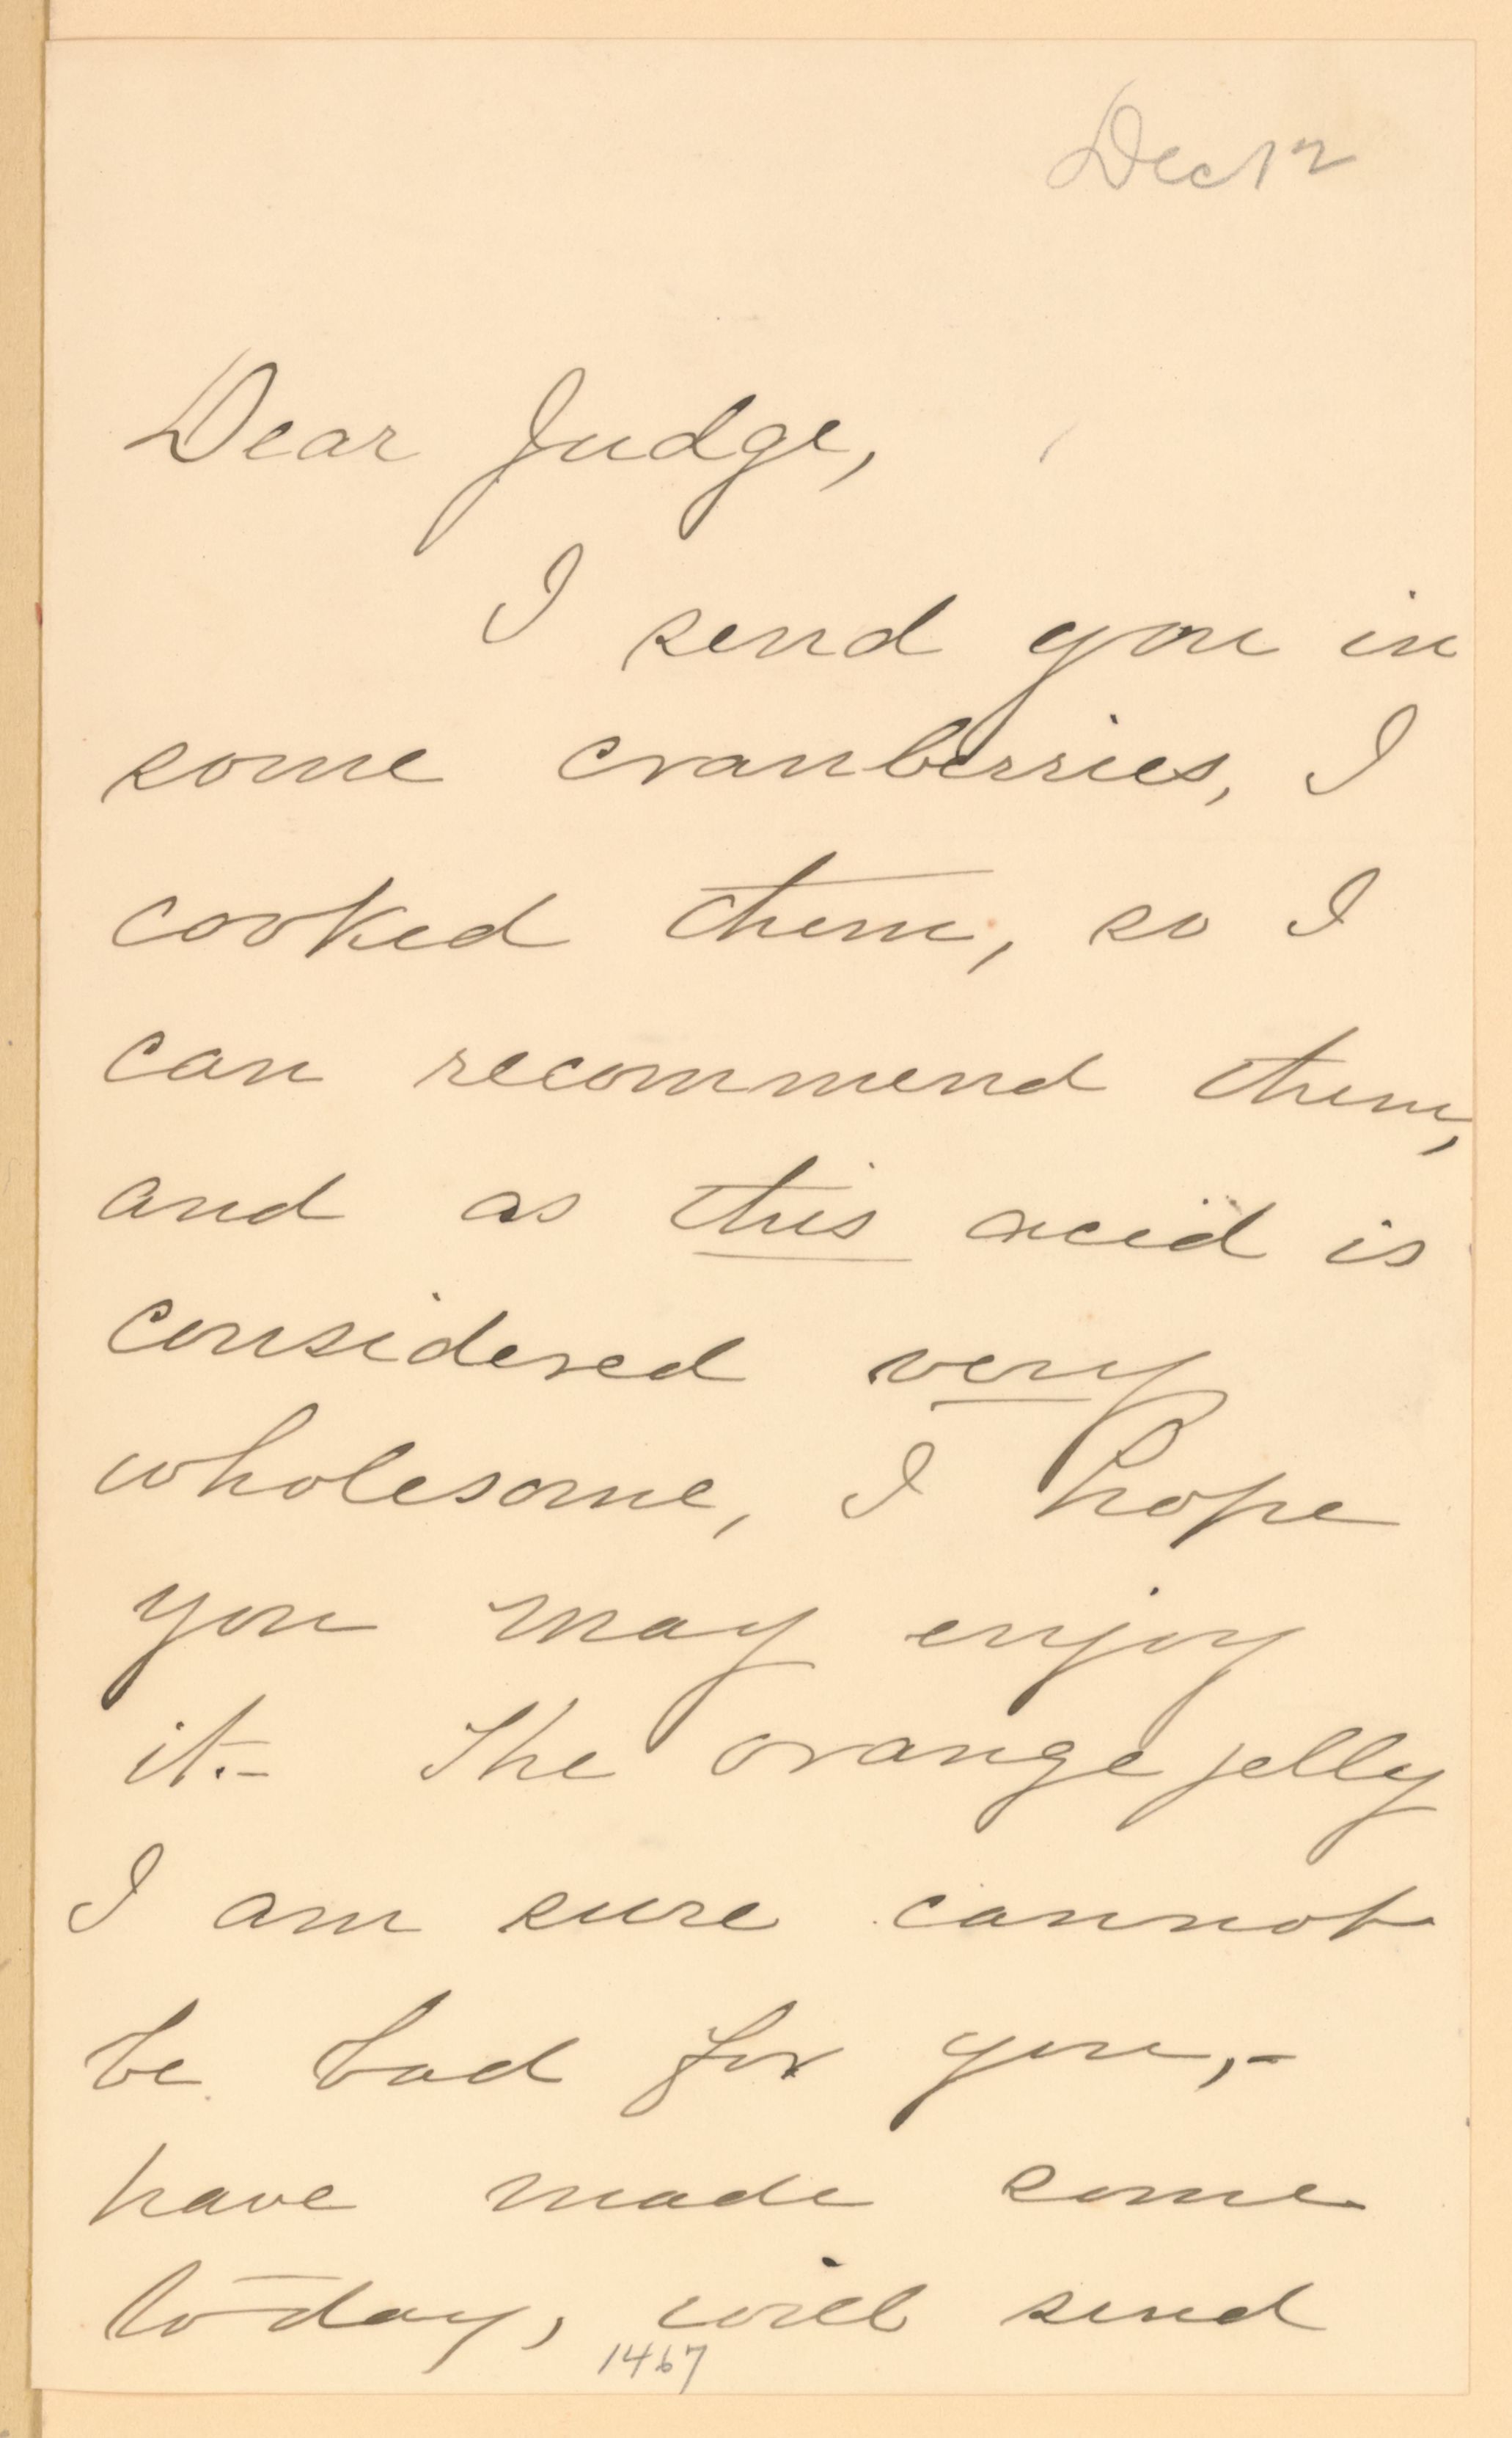 Dec 12
Dear Judge,
I send you in
some cranberries, I
cooked them, so I
can recommend them,
and as this acid is
considered very
wholesome, I hope
you may enjoy
it.- The orange jelly
I am sure cannot
be bad for you,-
have made some
today, will send
1467